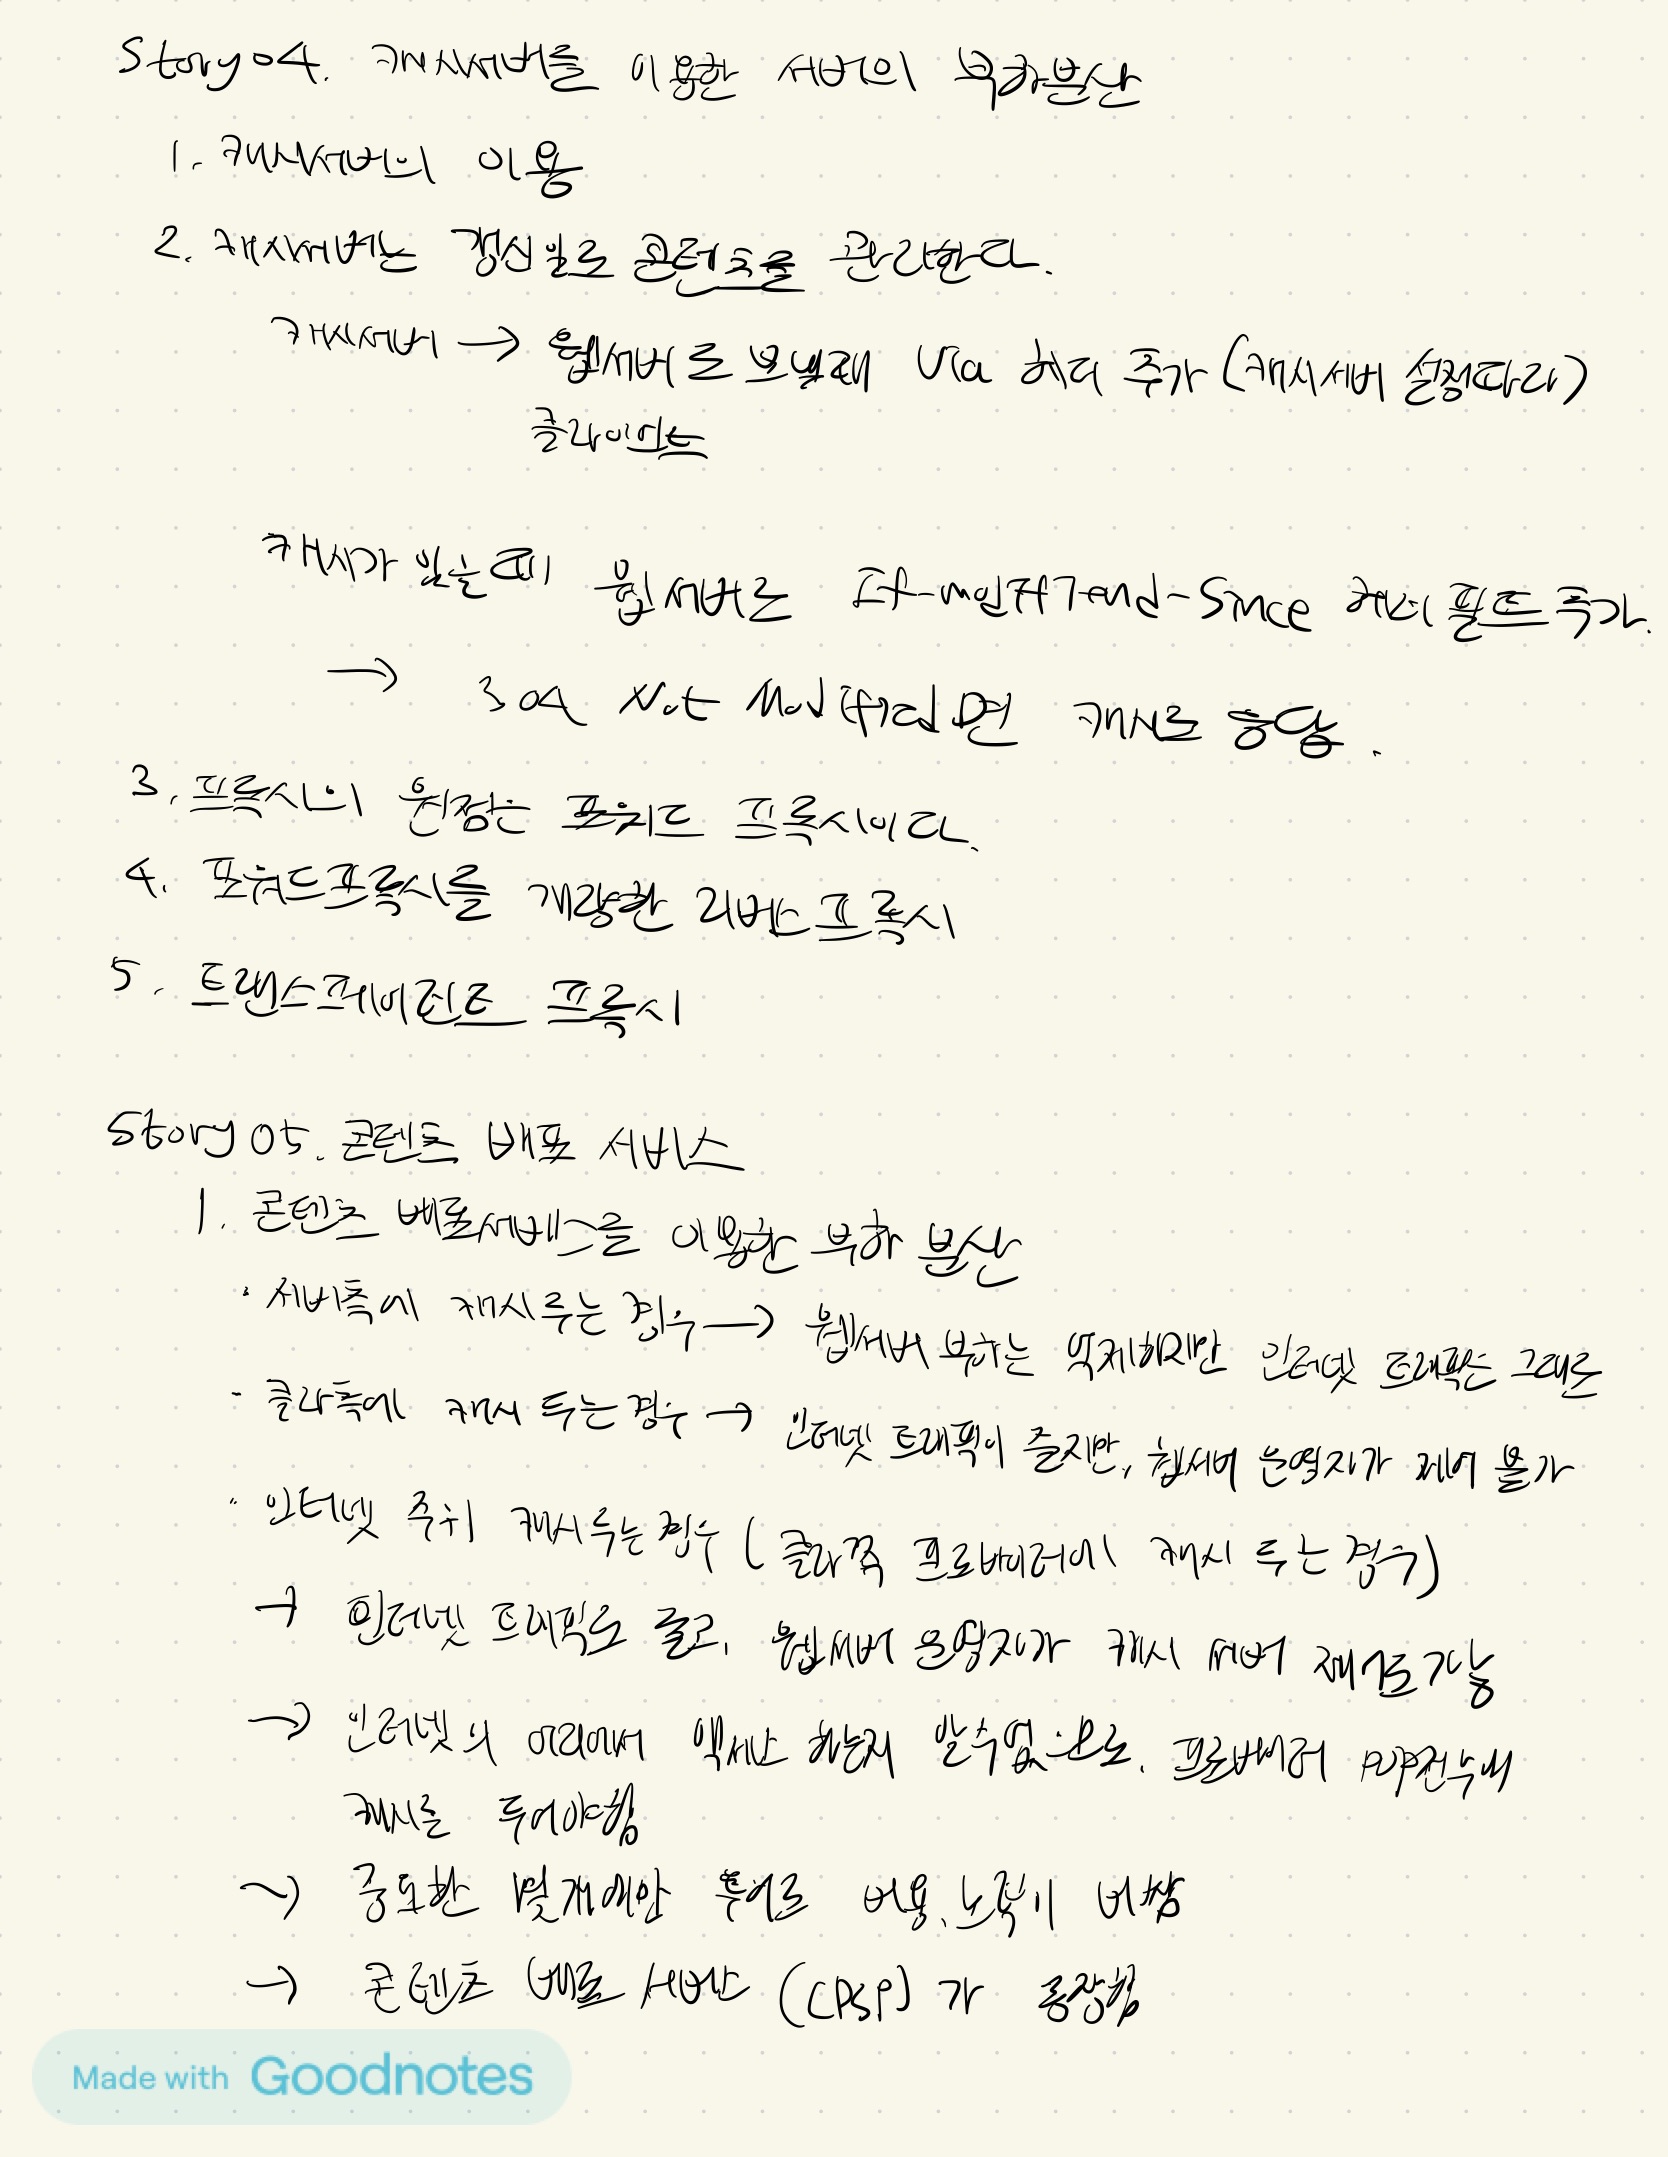 Story 04. 캐시서버를 이용한 서버의 부하분산
1. 캐시서버의 이용
2. 캐시서버는 갱신일로 콘텐츠를 관리한다.
캐시서버 → 웹서버로 보낼때 Via 헤더 추가 (캐시서버 설정따라)
클라이언트
캐시가 있을때 웹서버로 If-modified-Since 헤더 필드 추가.
→ 304 Not Modified면 캐시로 응답.
3. 프록시의 원점은 포워드 프록시이다.
4. 포워드프록시를 개량한 리버스프록시
5. 트랜스페어런트 프록시
Story 05. 콘텐츠 배포 서비스
1. 콘텐츠 배포서비스를 이용한 부하 분산
· 서버측에 캐시 두는 경우 → 웹서버 부하는 억제하지만 인터넷 트래픽은 그대로
· 클라측에 캐시 두는 경우 → 인터넷 트래픽이 줄지만, 웹서버 운영자가 제어 불가
· 인터넷 주위 캐시 두는 경우 (클라쪽 프로바이더에 캐시 두는 경우)
→ 인터넷 트래픽도 줄고, 웹서버 운영자가 캐시 서버 제어가능
→ 인터넷의 어디에서 액세스 하는지 알수없으므로, 프로바이더 POP전부에
캐시를 두어야함
→ 중요한 몇개에만 두어도 비용, 노력이 비쌈
→ 콘텐츠 배포 서비스 (CDSP)가 등장함
Made with Goodnotes